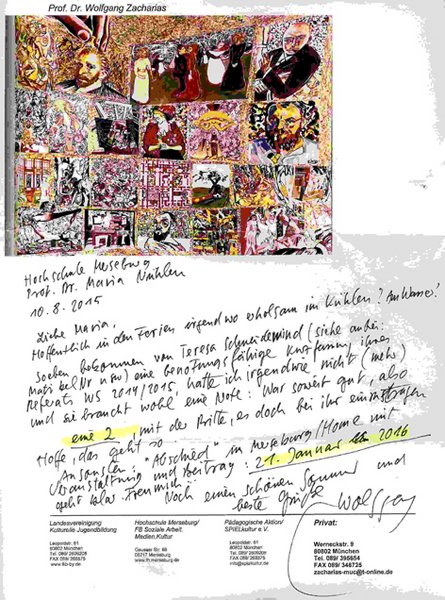 Prof. Dr. Wolfgang Zacharias
Hochschule Merseburg
Prof. Dr. Maria Nühlen
10.8.2015
Liebe Maria,
Hoffentlich in den Ferien irgendwo erholsam im Kühlen? Am Wasser?
Soeben bekommen von Teresa Schneidewind (siehe anbei:
Matrikel Nr usw) eine benotungsfähige Kurzfassung ihres
Referats WS 2014/2015, hatte ich irgendwie nicht (mehr)
und sie braucht wohl eine Note: War soweit gut, also
eine 2 mit der Bitte, es doch bei ihr einzutragen
Hoffe, das geht so.
Ansonsten: "Abschied" in Merseburg/Home mit
Veranstaltung und Beitrag: 21. Januar 2016
geht klar. Freu mich!
Noch einen schönen Sommer und
beste Grüße
Wolfgang
Landesvereinigung
Kulturelle Jugendbildung
Leopoldstr. 61
80802 München
www.lkb-by.de
Hochschule Merseburg/
FB Soziale Arbeit.
Medien.Kultur
Geusaer Str. 88
06217 Merseburg
www.hs-merseburg.de
Pädagogische Aktion/
SPIELkultur e.V.
Leopoldstr. 61
80802 München
info@spielkultur.de
Privat:
Werneckstr. 9
80802 München
Tel. 089/ 395654
FAX 089/ 346725
zacharias-muc@t-online.de